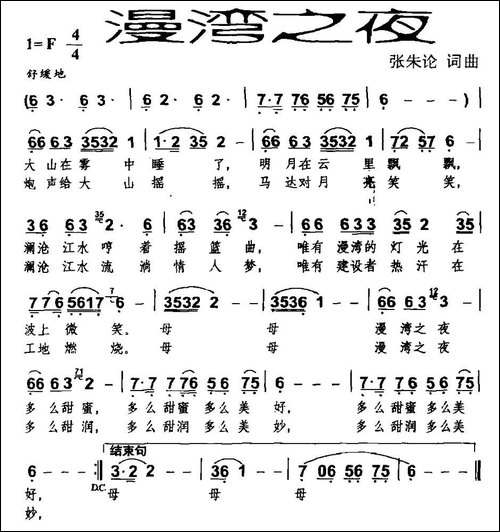 漫湾之夜
1=F 4/4
张朱论 词曲
舒缓地
(6 3· 6 3· | 6 2· 6 2· | 7·7 76 56 75 | 6 - - -) |
66 63 3532 1 | 1·2 35 2 - | 66 63 3532 1 | 72 57 6 - |
大山在雾 中 睡 了, 明月在云 里 飘 飘,
炮声给大 山 摇 摇, 马达对月 亮 笑 笑,
36 63 2· 6 | 63 36 3 - | 66 633 35 2 35 |
澜沧 江水 哼 着 摇 篮 曲, 唯有 漫湾的 灯 光 在
澜沧 江水 流 淌 情 人 梦, 唯有 建设者 热 汗 在
776 5617 6 - | 3532 2 - - | 3536 1 - - | 66 63 3 - |
波上 微 笑。 母 母 漫 湾之 夜
工地 燃 烧。 母 母 漫 湾之 夜
66 63 2 - | 7·7 776 56 75 | 6 - - - | 7·7 776 56 75 |
多 么甜 蜜, 多 么甜蜜 多么美 好, 多 么甜蜜 多么美
多 么甜 润, 多 么甜润 多么美 妙, 多 么甜润 多么美
结束句
6 - - - :‖ 3·2 2 - - | 36 1 - - | 7 06 56 75 | 6 - - - ‖
D.C.
好, 母 母 母
妙,